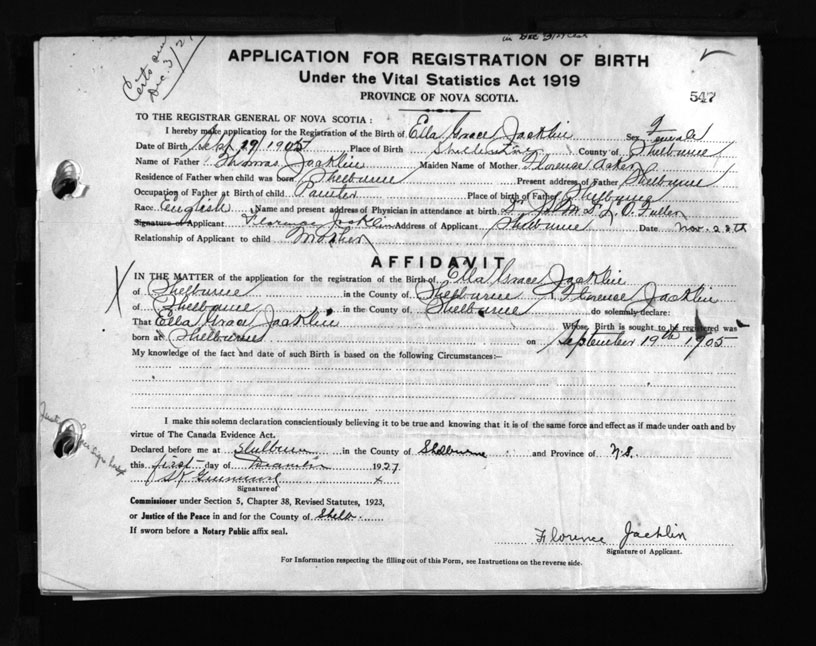 Dec. 3/27
APPLICATION FOR REGISTRATION OF BIRTH
Under the Vital Statistics Act 1919
PROVINCE OF NOVA SCOTIA.
547
TO THE REGISTRAR GENERAL OF NOVA SCOTIA :
I hereby make application for the Registration of the Birth of Ella Grace Jacklin Sex Female
Date of Birth Sept 19 1905 Place of Birth Shelburne County of Shelburne
Name of Father Thomas Jacklin Maiden Name of Mother Florence
Residence of Father when child was born Shelburne Present address of Father Shelburne
Occupation of Father at Birth of child Painter Place of birth of Father Shelburne
Race English Name and present address of Physician in attendance at birth Dr Fuller
Signature of Applicant Florence Jacklin Address of Applicant Shelburne Date Nov. 28th
Relationship of Applicant to child Mother
AFFIDAVIT
IN THE MATTER of the application for the registration of the Birth of Ella Grace Jacklin
of Shelburne in the County of Shelburne I, Florence Jacklin
of Shelburne in the County of Shelburne do solemnly declare:
That Ella Grace Jacklin Whose Birth is sought to be registered was
born at Shelburne on September 19th 1905
My knowledge of the fact and date of such Birth is based on the following Circumstances:—
I make this solemn declaration conscientiously believing it to be true and knowing that it is of the same force and effect as if made under oath and by
virtue of The Canada Evidence Act.
Declared before me at Shelburne in the County of Shelburne and Province of N.S.
this first day of December 1927
Signature of x
Commissioner under Section 5, Chapter 38, Revised Statutes, 1923,
or Justice of the Peace in and for the County of Shelb.
If sworn before a Notary Public affix seal.
Florence Jacklin
Signature of Applicant.
For Information respecting the filling out of this Form, see Instructions on the reverse side.